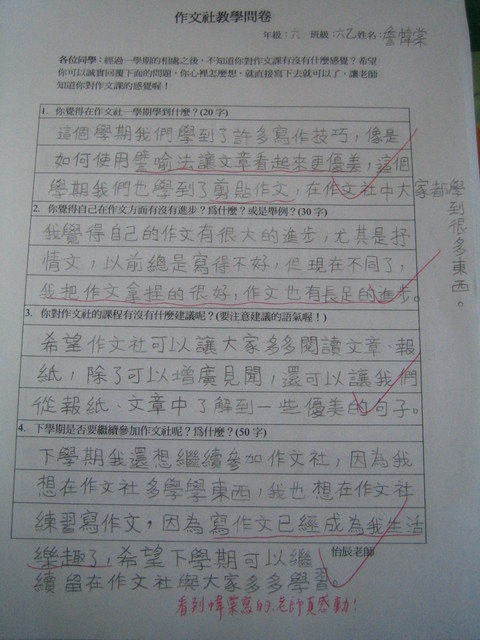 作文社教學問卷
年級：六 班級：六乙 姓名：詹幃棠
各位同學：經過一學期的相處之後，不知道你對作文課有沒有什麼感覺？希望
你可以誠實回覆下面的問題，你心裡怎麼想，就直接寫下去就可以了，讓老師
知道你對作文課的感覺喔！
1. 你覺得在作文社一學期學到什麼？(20 字)
這個學期我們學到了許多寫作技巧，像是
如何使用譬喻法讓文章看起來更優美，這個
學期我們也學到了剪貼作文，在作文社中大家都學
到很多東西。
2. 你覺得自己在作文方面有沒有進步？為什麼？或是舉例？(30 字)
我覺得自己的作文有很大的進步，尤其是抒
情文，以前總是寫得不好，但現在不同了，
我把作文拿捏的很好，作文也有長足的進步。
3. 你對作文社的課程有沒有什麼建議呢？(要注意建議的語氣喔！)
希望作文社可以讓大家多多閱讀文章、報
紙，除了可以增廣見聞，還可以讓我們
從報紙、文章中了解到一些優美的句子。
4. 下學期是否要繼續參加作文社呢？為什麼？(50 字)
下學期我還想繼續參加作文社，因為我
想在作文社多學學東西，我也想在作文社
練習寫作文，因為寫作文已經成為我生活
樂趣了，希望下學期可以繼
續留在作文社與大家多多學習。
怡辰老師
看到幃棠寫的，老師真感動！